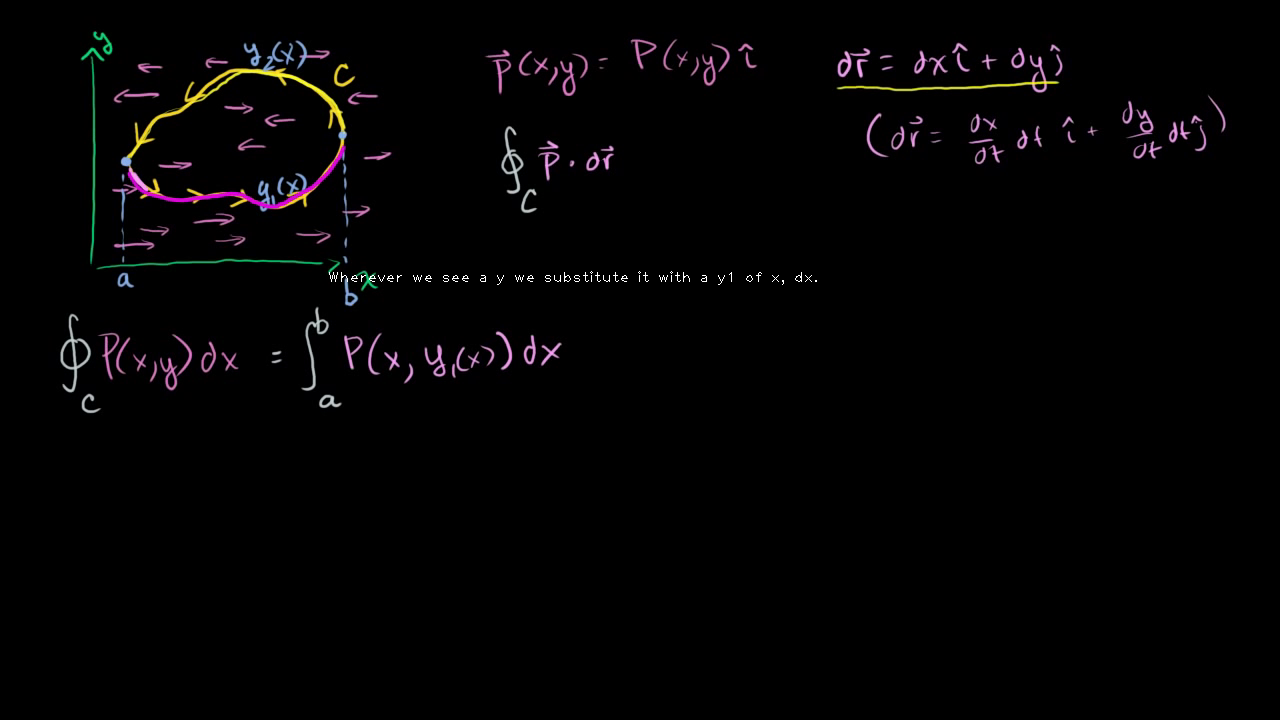 y
y₂(x)
C
y₁(x)
a
b
x
p⃗(x,y) = P(x,y) î
∮_C p⃗ · dr⃗
dr⃗ = dx î + dy ĵ
(dr⃗ = dx/dt dt î + dy/dt dt ĵ)
Wherever we see a y we substitute it with a y1 of x, dx.
∮_C P(x,y) dx = ∫_a^b P(x, y₁(x)) dx